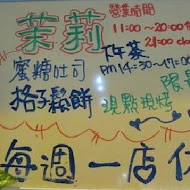 茉莉
營業時間
11:00~20:00
21:00 close
蜜糖吐司
下午茶
pm14:30~17:00
限
格子鬆餅
現點現烤
每週一店休